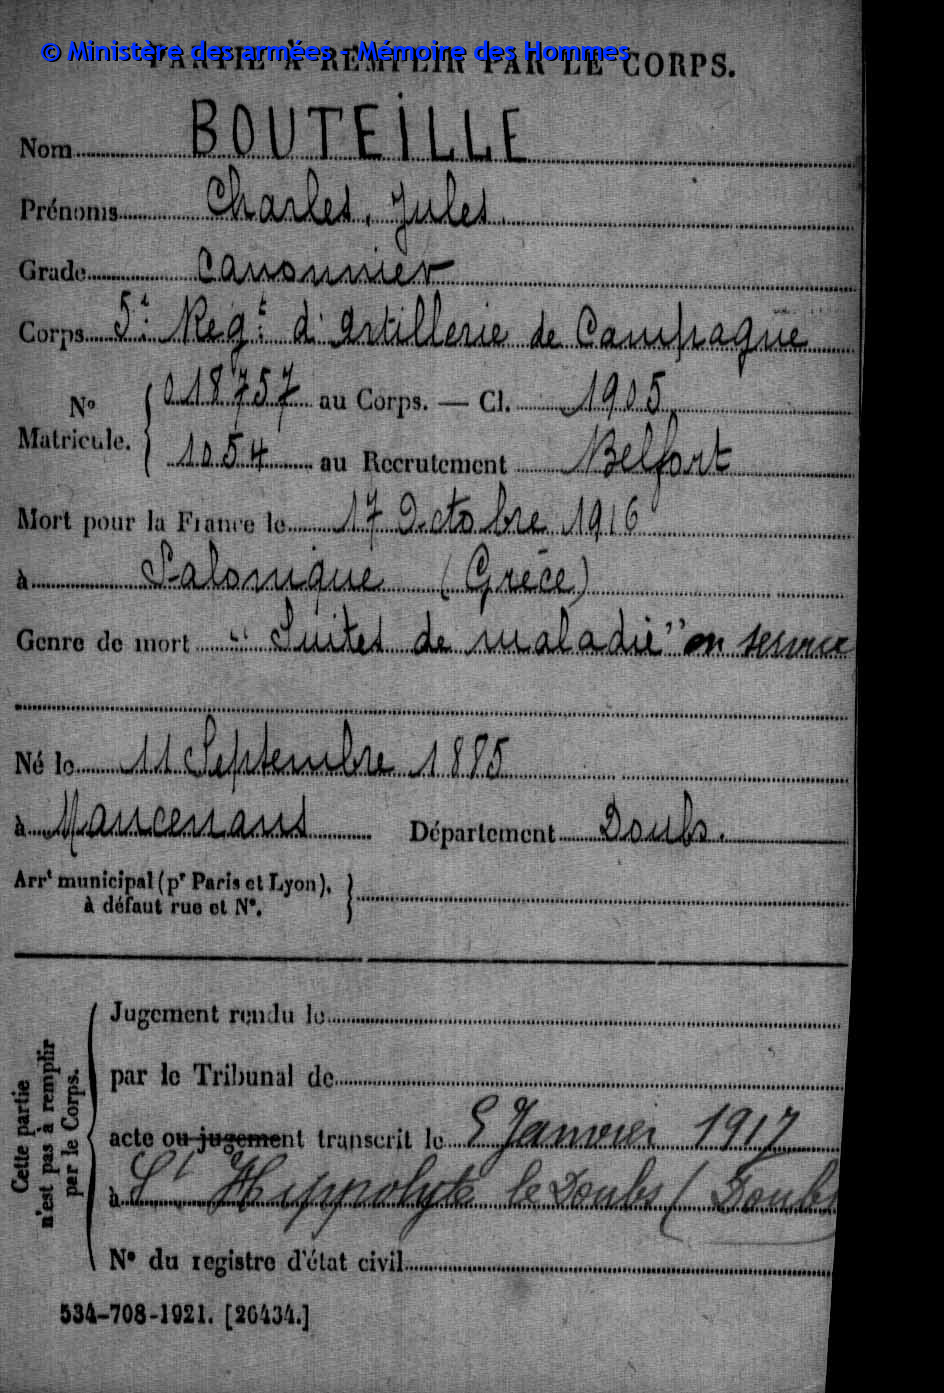 © Ministère des armées - Mémoire des Hommes
PARTIE À REMPLIR PAR LE CORPS.
Nom BOUTEILLE
Prénoms Charles, Jules.
Grade Canonnier
Corps 5e Regt d'Artillerie de Campagne
No Matricule. { 018757 au Corps. — Cl. 1905
1054 au Recrutement Belfort
Mort pour la France le 17 Octobre 1916
à Salonique (Grèce)
Genre de mort "Suites de maladie" en service
Né le 11 Septembre 1885
à Mancenans Département Doubs.
Arrt municipal (pr Paris et Lyon), à défaut rue et No.
Cette partie n'est pas à remplir par le Corps.
Jugement rendu le
par le Tribunal de
acte ou jugement transcrit le 5 Janvier 1917
à St Hippolyte le Doubs (Doubs
No du registre d'état civil
534-708-1921. [26434.]